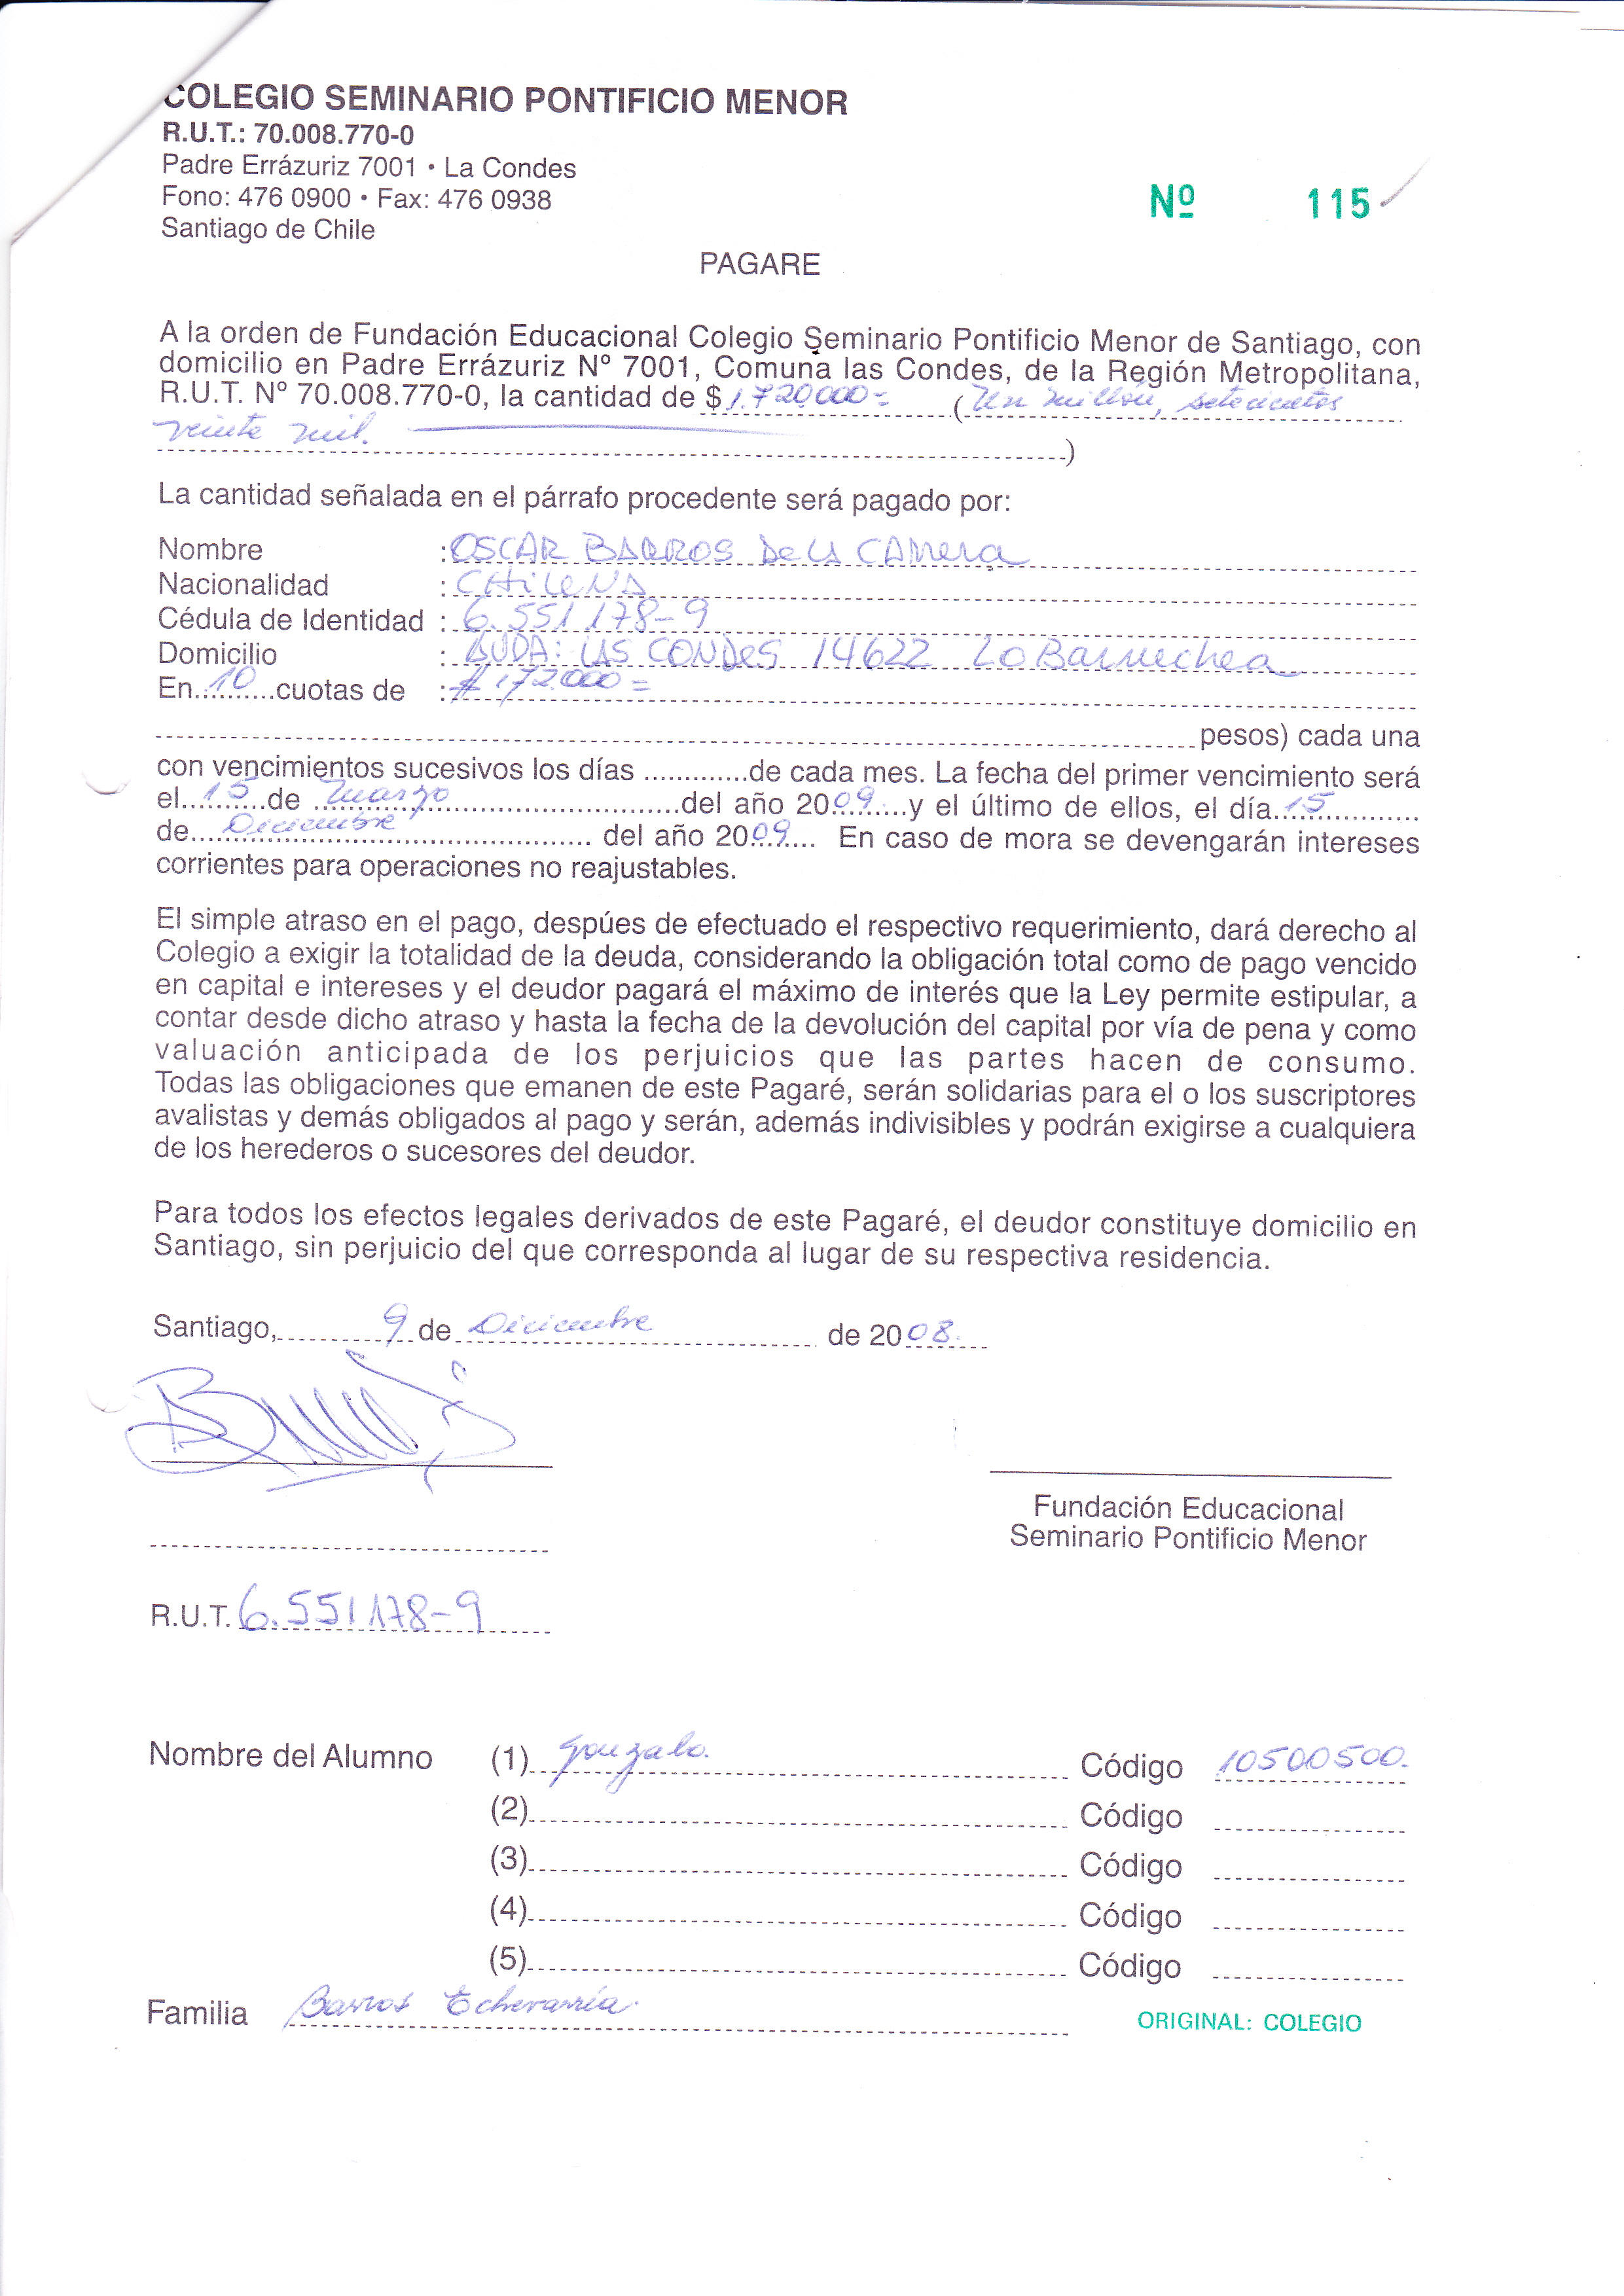 COLEGIO SEMINARIO PONTIFICIO MENOR
R.U.T.: 70.008.770-0
Padre Errázuriz 7001 • La Condes
Fono: 476 0900 • Fax: 476 0938
Santiago de Chile
Nº 115
PAGARE
A la orden de Fundación Educacional Colegio Seminario Pontificio Menor de Santiago, con
domicilio en Padre Errázuriz Nº 7001, Comuna las Condes, de la Región Metropolitana,
R.U.T. Nº 70.008.770-0, la cantidad de $ 1.720.000= (Un millón, setecientos
veinte mil. )
La cantidad señalada en el párrafo procedente será pagado por:
Nombre : OSCAR BARROS De LA CAMERA
Nacionalidad : CHILENA
Cédula de Identidad : 6.551.178-9
Domicilio : AVDA: LAS CONDES 14622 Lo Barnechea
En 10 cuotas de : $ 172.000=
pesos) cada una
con vencimientos sucesivos los días ............de cada mes. La fecha del primer vencimiento será
el 15 de Marzo del año 2009 y el último de ellos, el día 15
de Diciembre del año 2009 En caso de mora se devengarán intereses
corrientes para operaciones no reajustables.
El simple atraso en el pago, despúes de efectuado el respectivo requerimiento, dará derecho al
Colegio a exigir la totalidad de la deuda, considerando la obligación total como de pago vencido
en capital e intereses y el deudor pagará el máximo de interés que la Ley permite estipular, a
contar desde dicho atraso y hasta la fecha de la devolución del capital por vía de pena y como
valuación anticipada de los perjuicios que las partes hacen de consumo.
Todas las obligaciones que emanen de este Pagaré, serán solidarias para el o los suscriptores
avalistas y demás obligados al pago y serán, además indivisibles y podrán exigirse a cualquiera
de los herederos o sucesores del deudor.
Para todos los efectos legales derivados de este Pagaré, el deudor constituye domicilio en
Santiago, sin perjuicio del que corresponda al lugar de su respectiva residencia.
Santiago, 9 de Diciembre de 2008.
Fundación Educacional
Seminario Pontificio Menor
R.U.T. 6.551178-9
Nombre del Alumno (1) Gonzalo. Código 10500500.
(2) Código
(3) Código
(4) Código
(5) Código
Familia Barros Echevarría.
ORIGINAL: COLEGIO